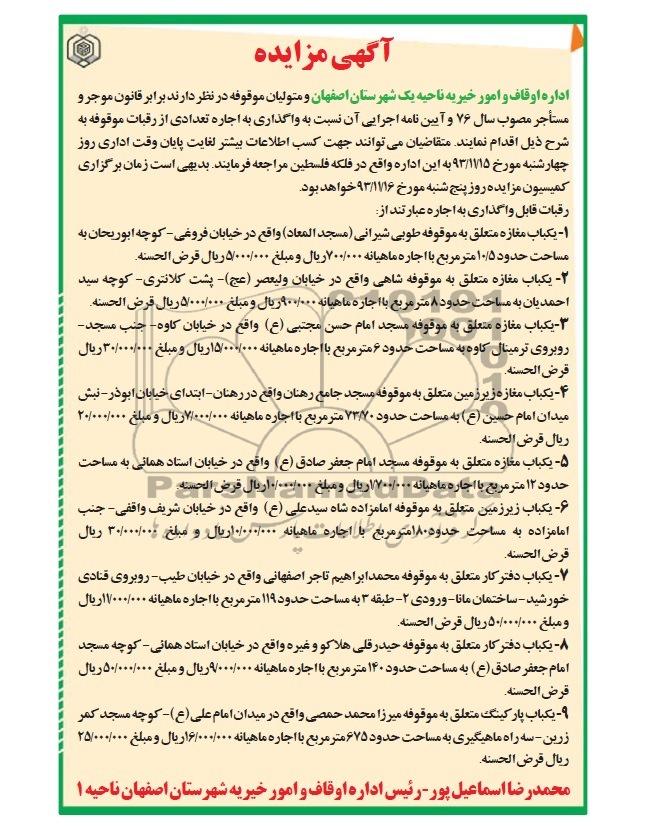 آگهی مزایده
اداره اوقاف و امور خیریه ناحیه یک شهرستان اصفهان و متولیان موقوفه در نظر دارند برابر قانون موجر و
مستأجر مصوب سال ۷۶ و آیین نامه اجرایی آن نسبت به واگذاری به اجاره تعدادی از رقبات موقوفه به
شرح ذیل اقدام نمایند. متقاضیان می توانند جهت کسب اطلاعات بیشتر لغایت پایان وقت اداری روز
چهارشنبه مورخ ۹۳/۱۱/۱۵ به این اداره واقع در فلکه فلسطین مراجعه فرمایند. بدیهی است زمان برگزاری
کمیسیون مزایده روز پنج شنبه مورخ ۹۳/۱۱/۱۶ خواهد بود.
رقبات قابل واگذاری به اجاره عبارتند از:
۱- یکباب مغازه متعلق به موقوفه طوبی شیرانی (مسجد المعاد) واقع در خیابان فروغی- کوچه ابوریحان به
مساحت حدود ۱۰/۵ مترمربع با اجاره ماهیانه ۷۰۰/۰۰۰ ریال و مبلغ ۵/۰۰۰/۰۰۰ ریال قرض الحسنه.
۲- یکباب مغازه متعلق به موقوفه شاهی واقع در خیابان ولیعصر (عج)- پشت کلانتری- کوچه سید
احمدیان به مساحت حدود ۸ مترمربع با اجاره ماهیانه ۹۰۰/۰۰۰ ریال و مبلغ ۵/۰۰۰/۰۰۰ ریال قرض الحسنه.
۳- یکباب مغازه متعلق به موقوفه مسجد امام حسن مجتبی (ع) واقع در خیابان کاوه- جنب مسجد-
روبروی ترمینال کاوه به مساحت حدود ۶ مترمربع با اجاره ماهیانه ۱۵/۰۰۰/۰۰۰ ریال و مبلغ ۳۰/۰۰۰/۰۰۰ ریال
قرض الحسنه.
۴- یکباب مغازه زیرزمین متعلق به موقوفه مسجد جامع رهنان واقع در رهنان- ابتدای خیابان ابوذر- نبش
میدان امام حسین (ع) به مساحت حدود ۷۳/۷۰ مترمربع با اجاره ماهیانه ۷/۰۰۰/۰۰۰ ریال و مبلغ ۲۰/۰۰۰/۰۰۰
ریال قرض الحسنه.
۵- یکباب مغازه متعلق به موقوفه مسجد امام جعفر صادق (ع) واقع در خیابان استاد همائی به مساحت
حدود ۱۲ مترمربع با اجاره ماهیانه ۱/۷۰۰/۰۰۰ ریال و مبلغ ۱۰/۰۰۰/۰۰۰ ریال قرض الحسنه.
۶- یکباب زیرزمین متعلق به موقوفه امامزاده شاه سیدعلی (ع) واقع در خیابان شریف واقفی- جنب
امامزاده به مساحت حدود ۱۸۰ مترمربع با اجاره ماهیانه ۱۰/۰۰۰/۰۰۰ ریال و مبلغ ۳۰/۰۰۰/۰۰۰ ریال قرض
الحسنه.
۷- یکباب دفتر کار متعلق به موقوفه محمدابراهیم تاجر اصفهانی واقع در خیابان طیب- روبروی قنادی
خورشید- ساختمان مانا- ورودی ۲- طبقه ۳ به مساحت حدود ۱۱۹ مترمربع با اجاره ماهیانه ۱۱/۰۰۰/۰۰۰ ریال
و مبلغ ۵۰/۰۰۰/۰۰۰ ریال قرض الحسنه.
۸- یکباب دفتر کار متعلق به موقوفه حیدرقلی هلاکو و غیره واقع در خیابان استاد همائی- کوچه مسجد
امام جعفر صادق (ع) به مساحت حدود ۱۴۰ مترمربع با اجاره ماهیانه ۹/۰۰۰/۰۰۰ ریال و مبلغ ۵۰/۰۰۰/۰۰۰ ریال
قرض الحسنه.
۹- یکباب پارکینگ متعلق به موقوفه میرزا محمد حمصی واقع در میدان امام علی (ع)- کوچه مسجد کمر
زرین- سه راه ماهیگیری به مساحت حدود ۶۷۵ مترمربع با اجاره ماهیانه ۱۶/۰۰۰/۰۰۰ ریال و مبلغ ۲۵/۰۰۰/۰۰۰
ریال قرض الحسنه.
محمدرضا اسماعیل پور- رئیس اداره اوقاف و امور خیریه شهرستان اصفهان ناحیه ۱
ParsNamadData